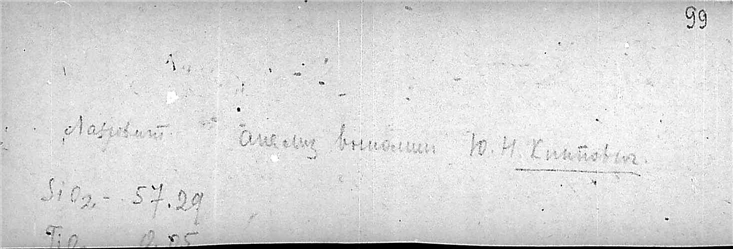 99
Лазовит. Анализ выполнил Ю. Н. Книпович.
SiO2 - 57.29
TiO